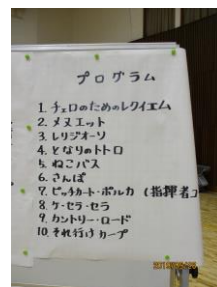 プログラム
1. チェロのためのレクイエム
2. メヌエット
3. レリジオーソ
4. となりのトトロ
5. ねこバス
6. さんぽ
7. ピッチカート・ポルカ (指揮者コ
8. ケ・セラ・セラ
9. カントリー・ロード
10. それ行けカープ